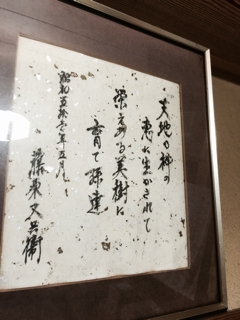 天地の神の
恵に生かされて
栄える美樹に
育て
昭和五拾
年五月
藤東文兵衛